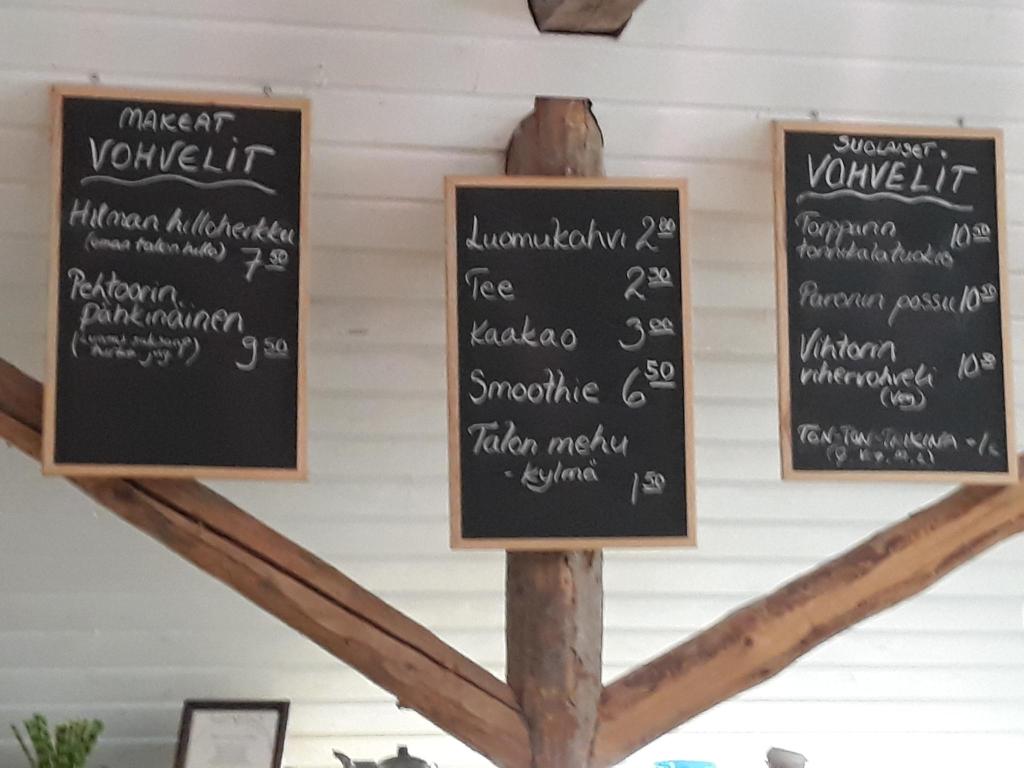 MAKEAT
VOHVELIT
Hilman hilloherkku
(oman talon hillo)
7 50
Pehtoorin
pähkinäinen
9 50
Luomukahvi 2 80
Tee 2 30
Kaakao 3 00
Smoothie 6 50
Talon mehu
- kylmä
1 50
SUOLAISET
VOHVELIT
Torpparin 10 50
torvikalatuokio
Paronin possu 10 50
Vihtorin
vihervohveli 10
(veg)